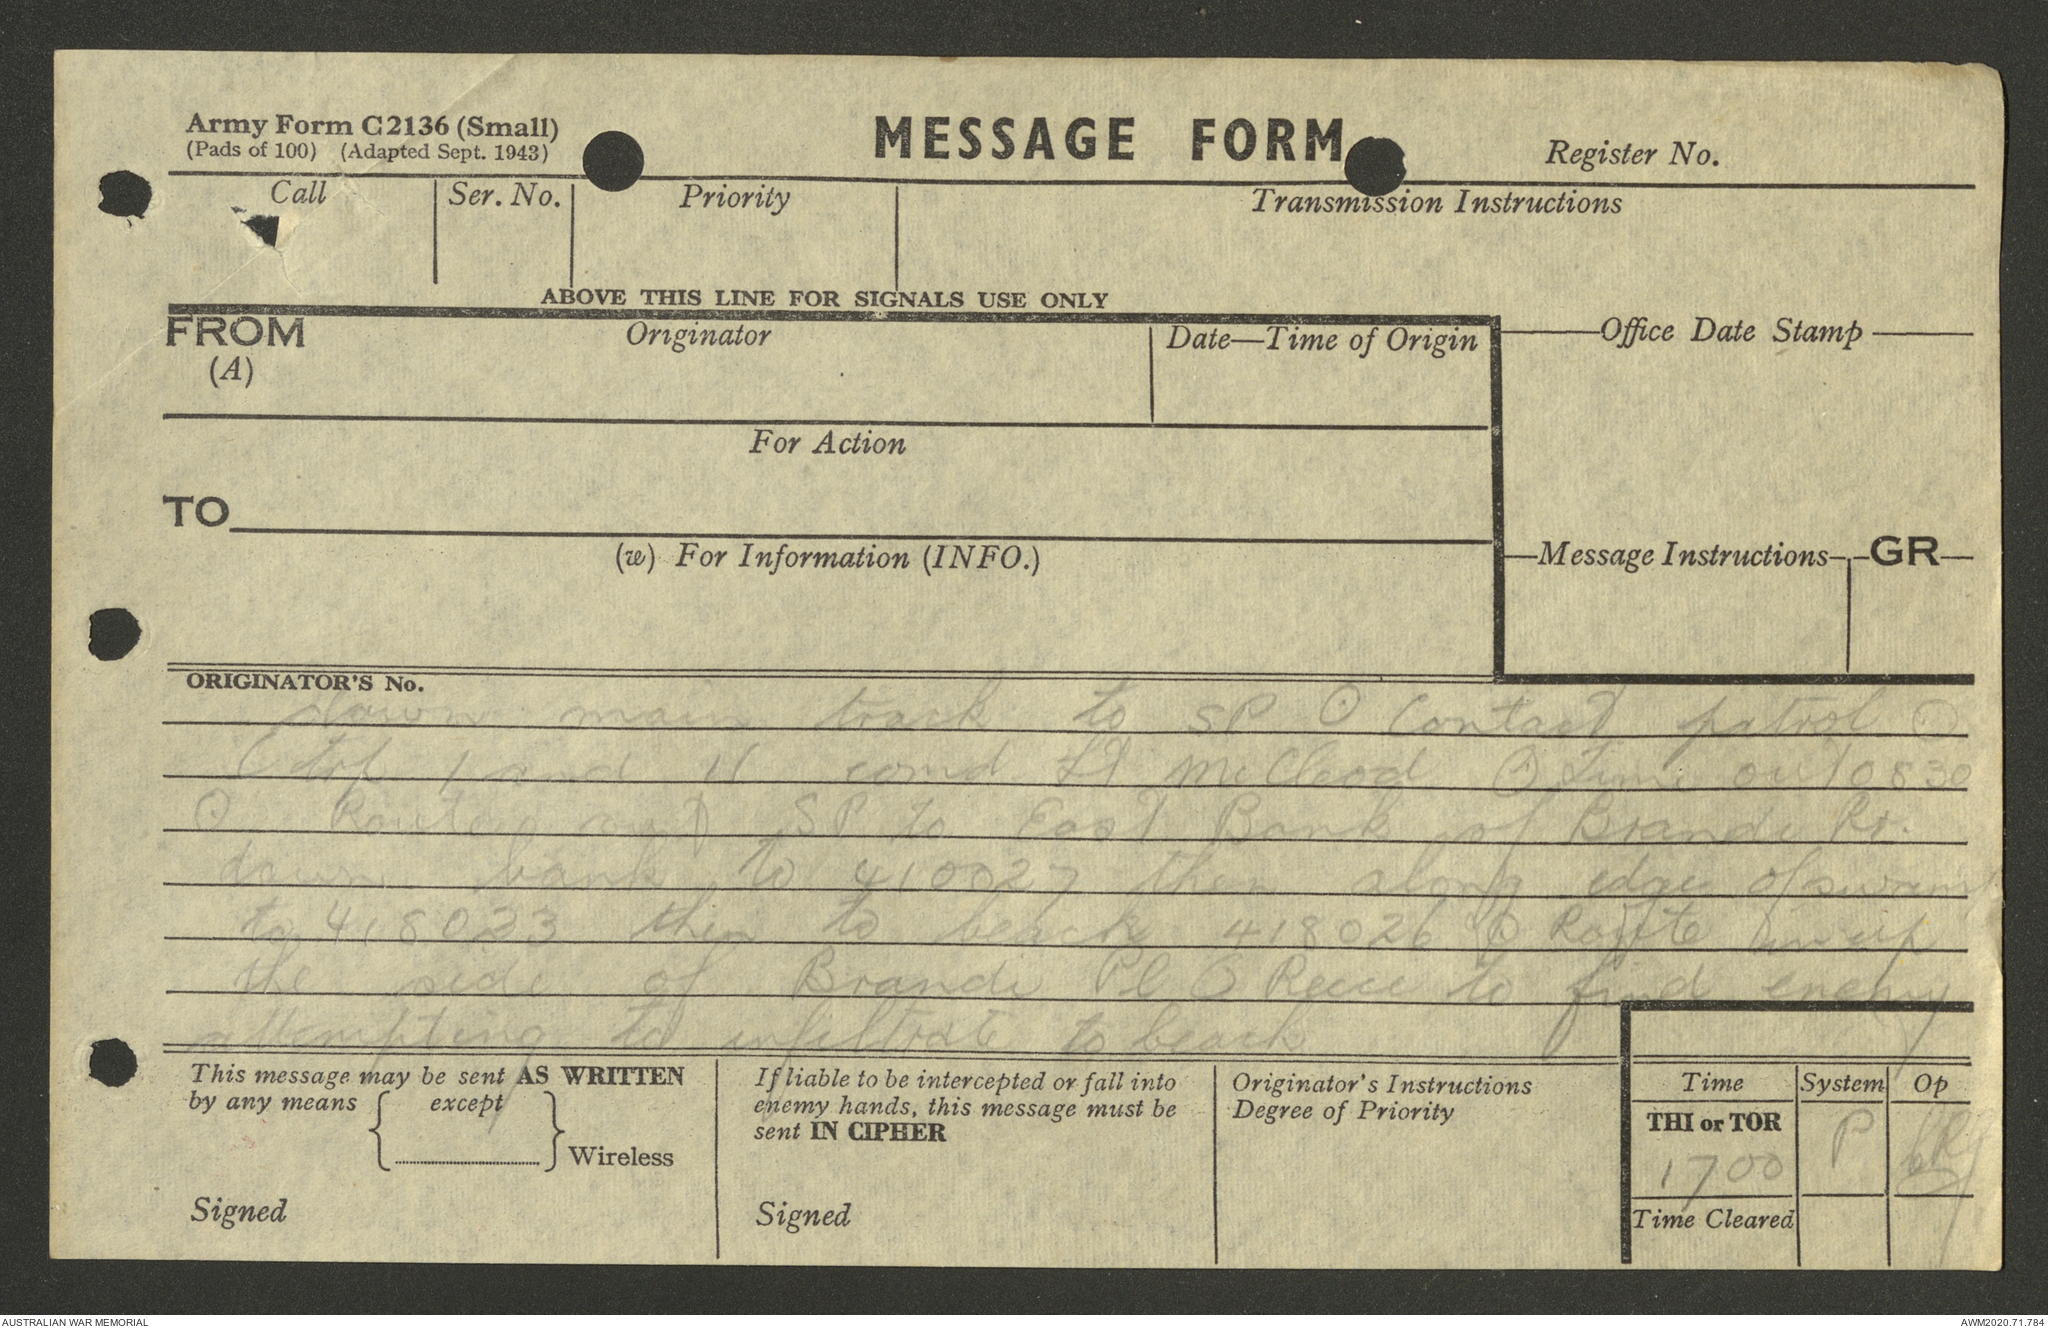 Army Form C2136 (Small)
(Pads of 100) (Adapted Sept. 1943)
MESSAGE FORM
Register No.
Call Ser. No. Priority Transmission Instructions
ABOVE THIS LINE FOR SIGNALS USE ONLY
FROM Originator Date—Time of Origin Office Date Stamp
(A)
For Action
TO
(w) For Information (INFO.) Message Instructions GR
ORIGINATOR'S No.
down main track to SP ⊙ Contact patrol ⊙
1 and 11 comd Lt McCleod ⊙ Time out 0830
⊙ Route out SP to East Bank of Brandi Rr.
down bank to 410027 then along edge of swamp
to 418023 then to beach 418026 ⊙ Route in up
the side of Brandi Pl ⊙ Recce to find enemy
attempting to infiltrate to beach
This message may be sent AS WRITTEN
by any means except
Wireless
Signed
If liable to be intercepted or fall into
enemy hands, this message must be
sent IN CIPHER
Signed
Originator's Instructions
Degree of Priority
Time System Op
THI or TOR
1700 P
Time Cleared
AUSTRALIAN WAR MEMORIAL AWM2020.71.784